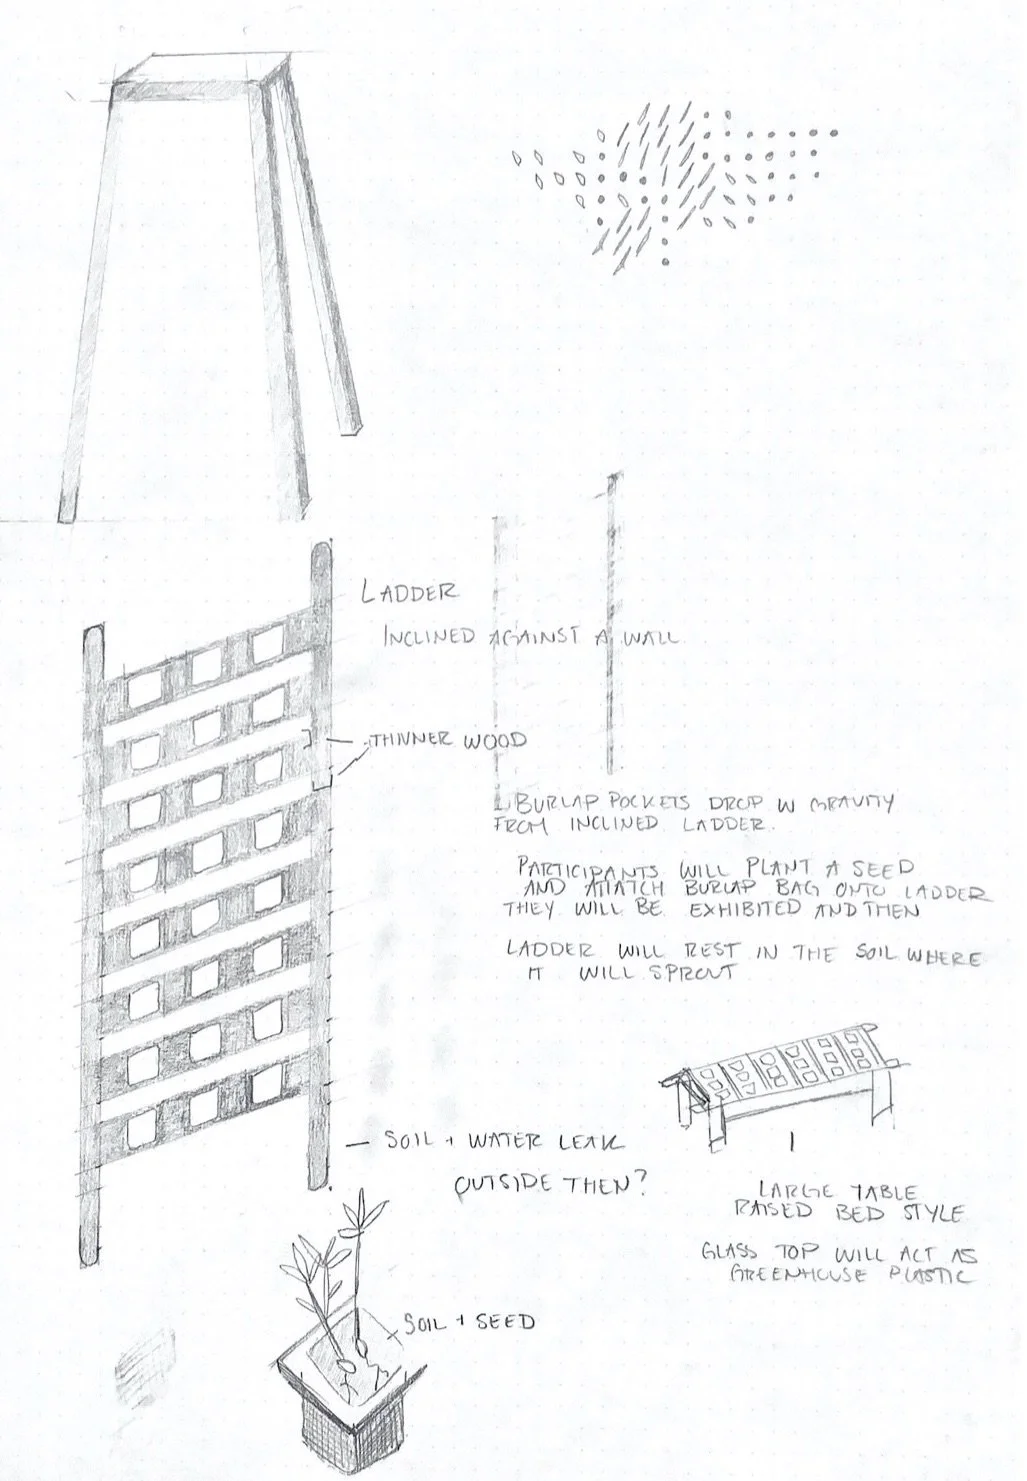 LADDER
INCLINED AGAINST A WALL
THINNER WOOD
BURLAP POCKETS DROP W GRAVITY
FROM INCLINED LADDER.
PARTICIPANTS WILL PLANT A SEED
AND ATTATCH BURLAP BAG ONTO LADDER
THEY WILL BE EXHIBITED AND THEN
LADDER WILL REST IN THE SOIL WHERE
IT WILL SPROUT
SOIL + WATER LEAK
OUTSIDE THEN?
LARGE TABLE
RAISED BED STYLE
GLASS TOP WILL ACT AS
GREENHOUSE PLASTIC
SOIL + SEED